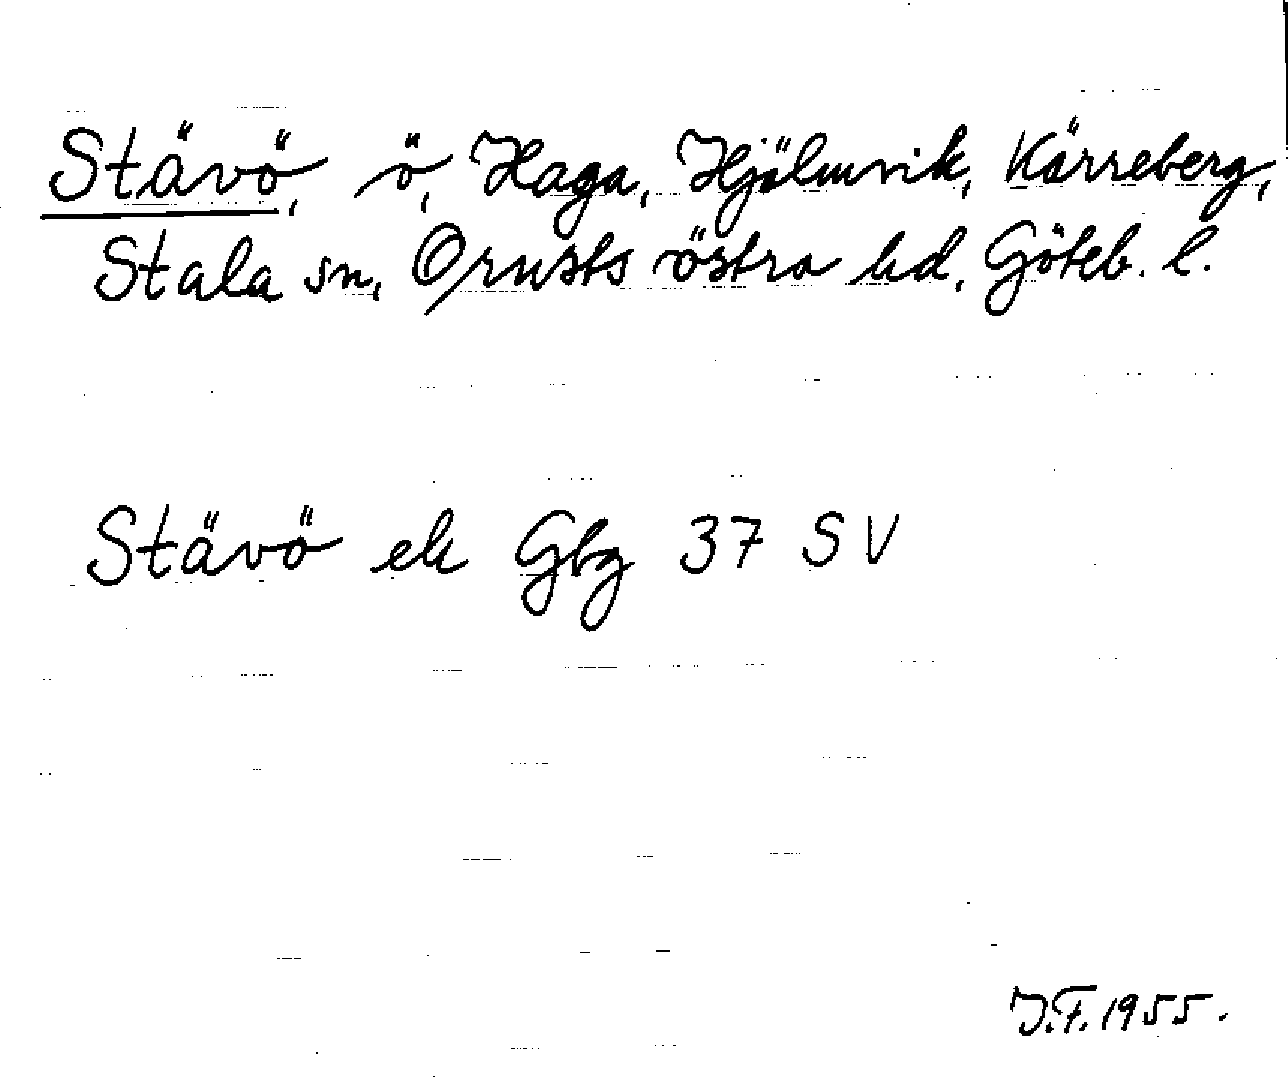 Stävö, ö, Haga, Hjälmvik, Kärreberg,
Stala sn, Orusts östra hd, Göteb. l.
Stävö ek Gbg 37 SV
J.F. 1955.